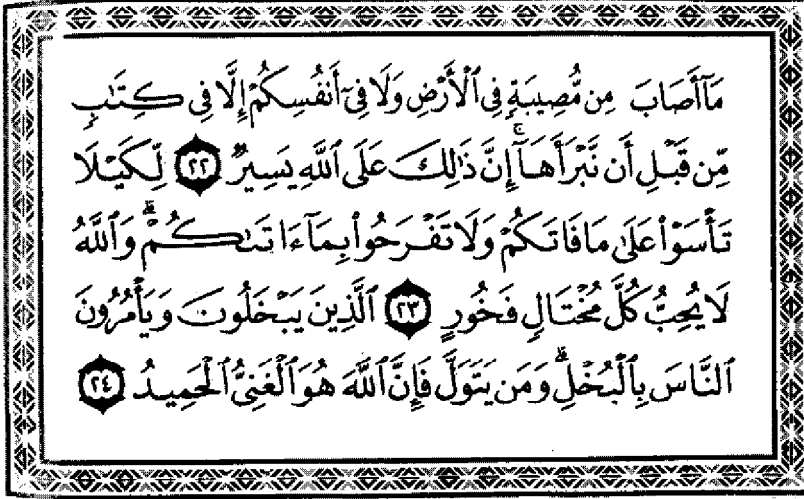 مَآ أَصَابَ مِن مُّصِيبَةٍ فِي ٱلْأَرْضِ وَلَا فِىٓ أَنفُسِكُمْ إِلَّا فِى كِتَٰبٍ
مِّن قَبْلِ أَن نَّبْرَأَهَآ ۚ إِنَّ ذَٰلِكَ عَلَى ٱللَّهِ يَسِيرٌ ٢٢ لِّكَيْلَا
تَأْسَوْا۟ عَلَىٰ مَا فَاتَكُمْ وَلَا تَفْرَحُوا۟ بِمَآ ءَاتَىٰكُمْ ۗ وَٱللَّهُ
لَا يُحِبُّ كُلَّ مُخْتَالٍ فَخُورٍ ٢٣ ٱلَّذِينَ يَبْخَلُونَ وَيَأْمُرُونَ
ٱلنَّاسَ بِٱلْبُخْلِ ۗ وَمَن يَتَوَلَّ فَإِنَّ ٱللَّهَ هُوَ ٱلْغَنِىُّ ٱلْحَمِيدُ ٢٤